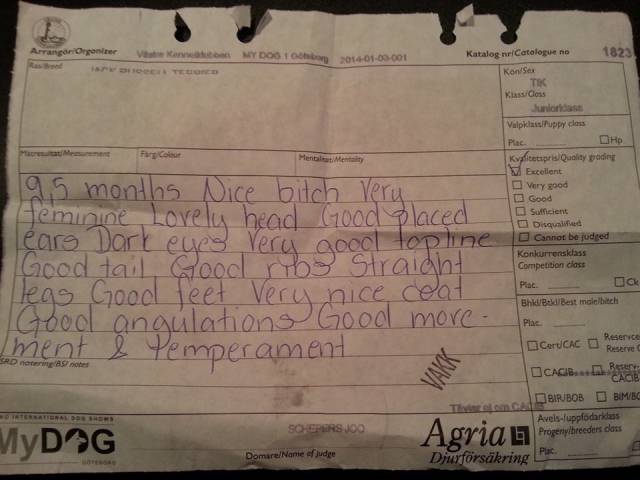 Arrangör/Organizer
Västra Kennelklubben MY DOG 1 Göteborg 2014-01-03-001
Katalog nr/Catalogue no 1823
Ras/Breed
Kön/Sex
TIK
Klass/Class
Juniorklass
Valpklass/Puppy class
Plac. Hp
Mätresultat/Measurement Färg/Colour Mentalitet/Mentality
Kvalitetspris/Quality grading
Excellent
Very good
Good
Sufficient
Disqualified
Cannot be judged
9,5 months Nice bitch Very
feminine Lovely head Good placed
ears Dark eyes Very good topline
Good tail Good ribs Straight
legs Good feet Very nice coat
Good angulations Good move-
ment & temperament
Konkurrensklass
Competition class
Plac. Ck
Bhkl/Btkl/Best male/bitch
Plac.
Cert/CAC Reservce
Reserve C
CACIB Reserv-
CACIB
BIR/BOB BIM/BO
SRD notering/BSI notes
VAKK
Tävlar ej om CACIB
INTERNATIONAL DOG SHOWS
MyDOG
GÖTEBORG
SCHEPERS JOO
Domare/Name of judge
Agria
Djurförsäkring
Avels-/uppfödarklass
Progeny/breeders class
Plac.